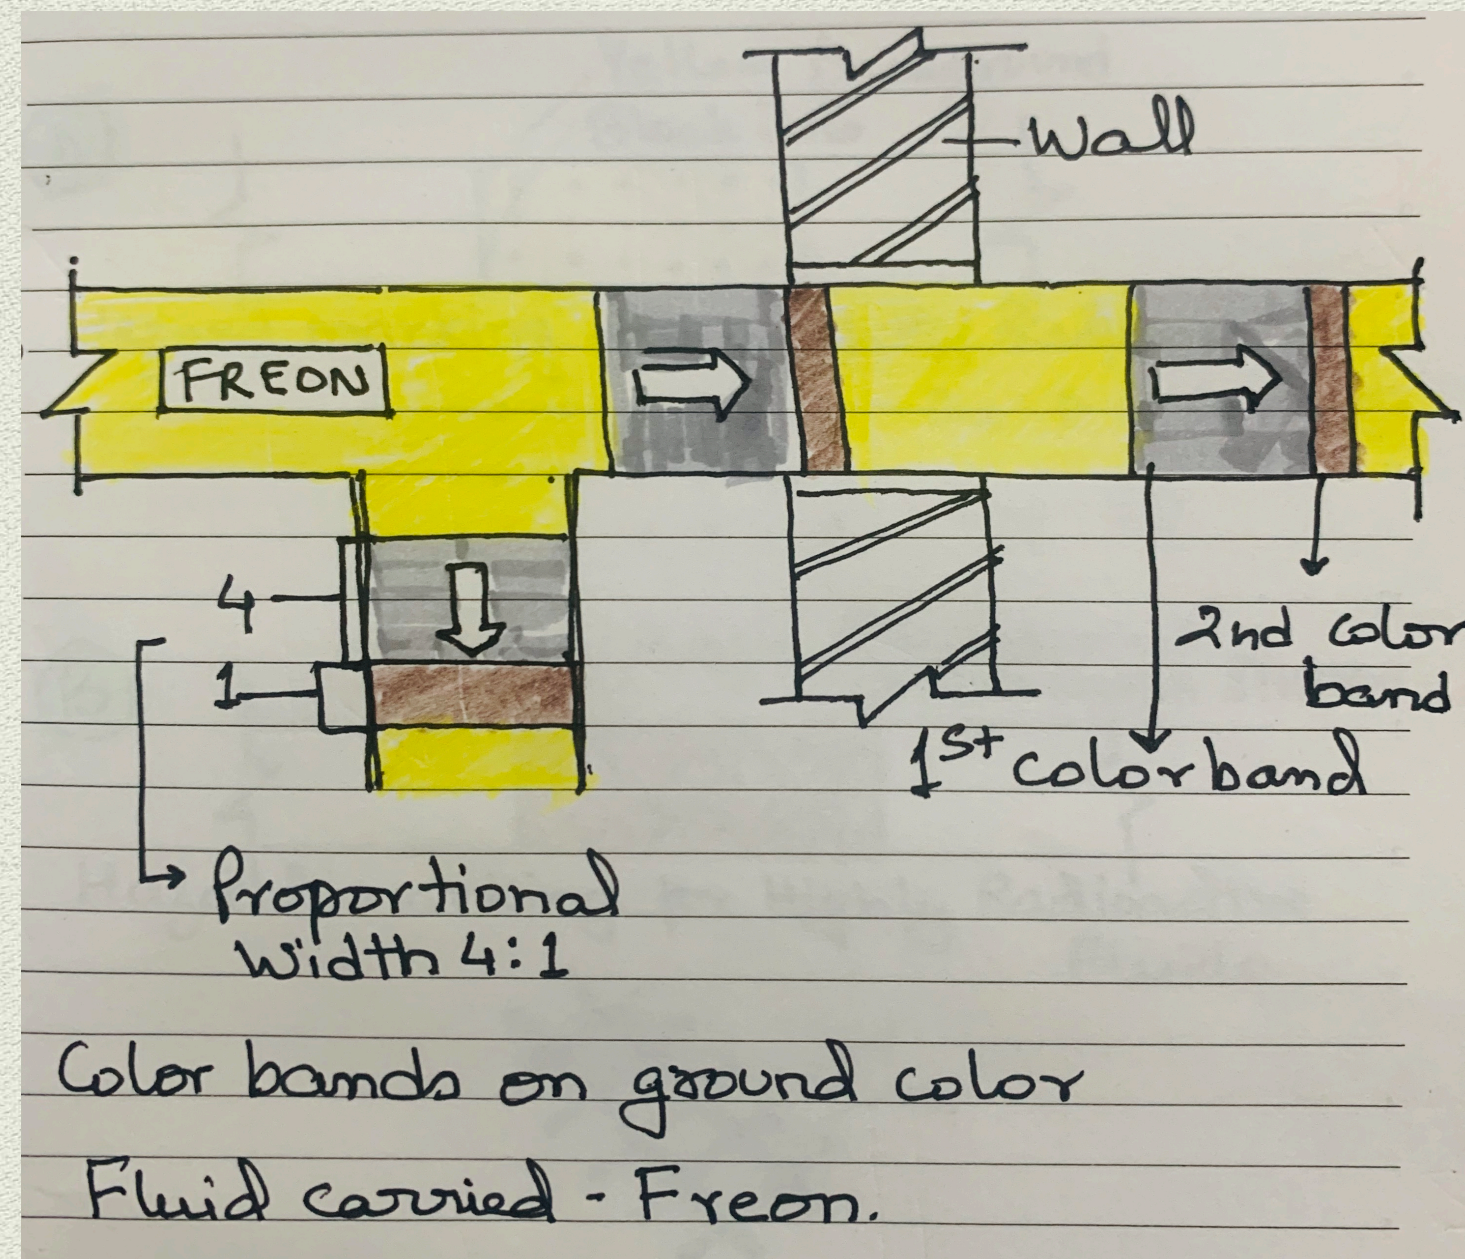 Wall
FREON
4
1
2nd color
band
1st color band
Proportional
Width 4:1
Color bands on ground color
Fluid carried - Freon.